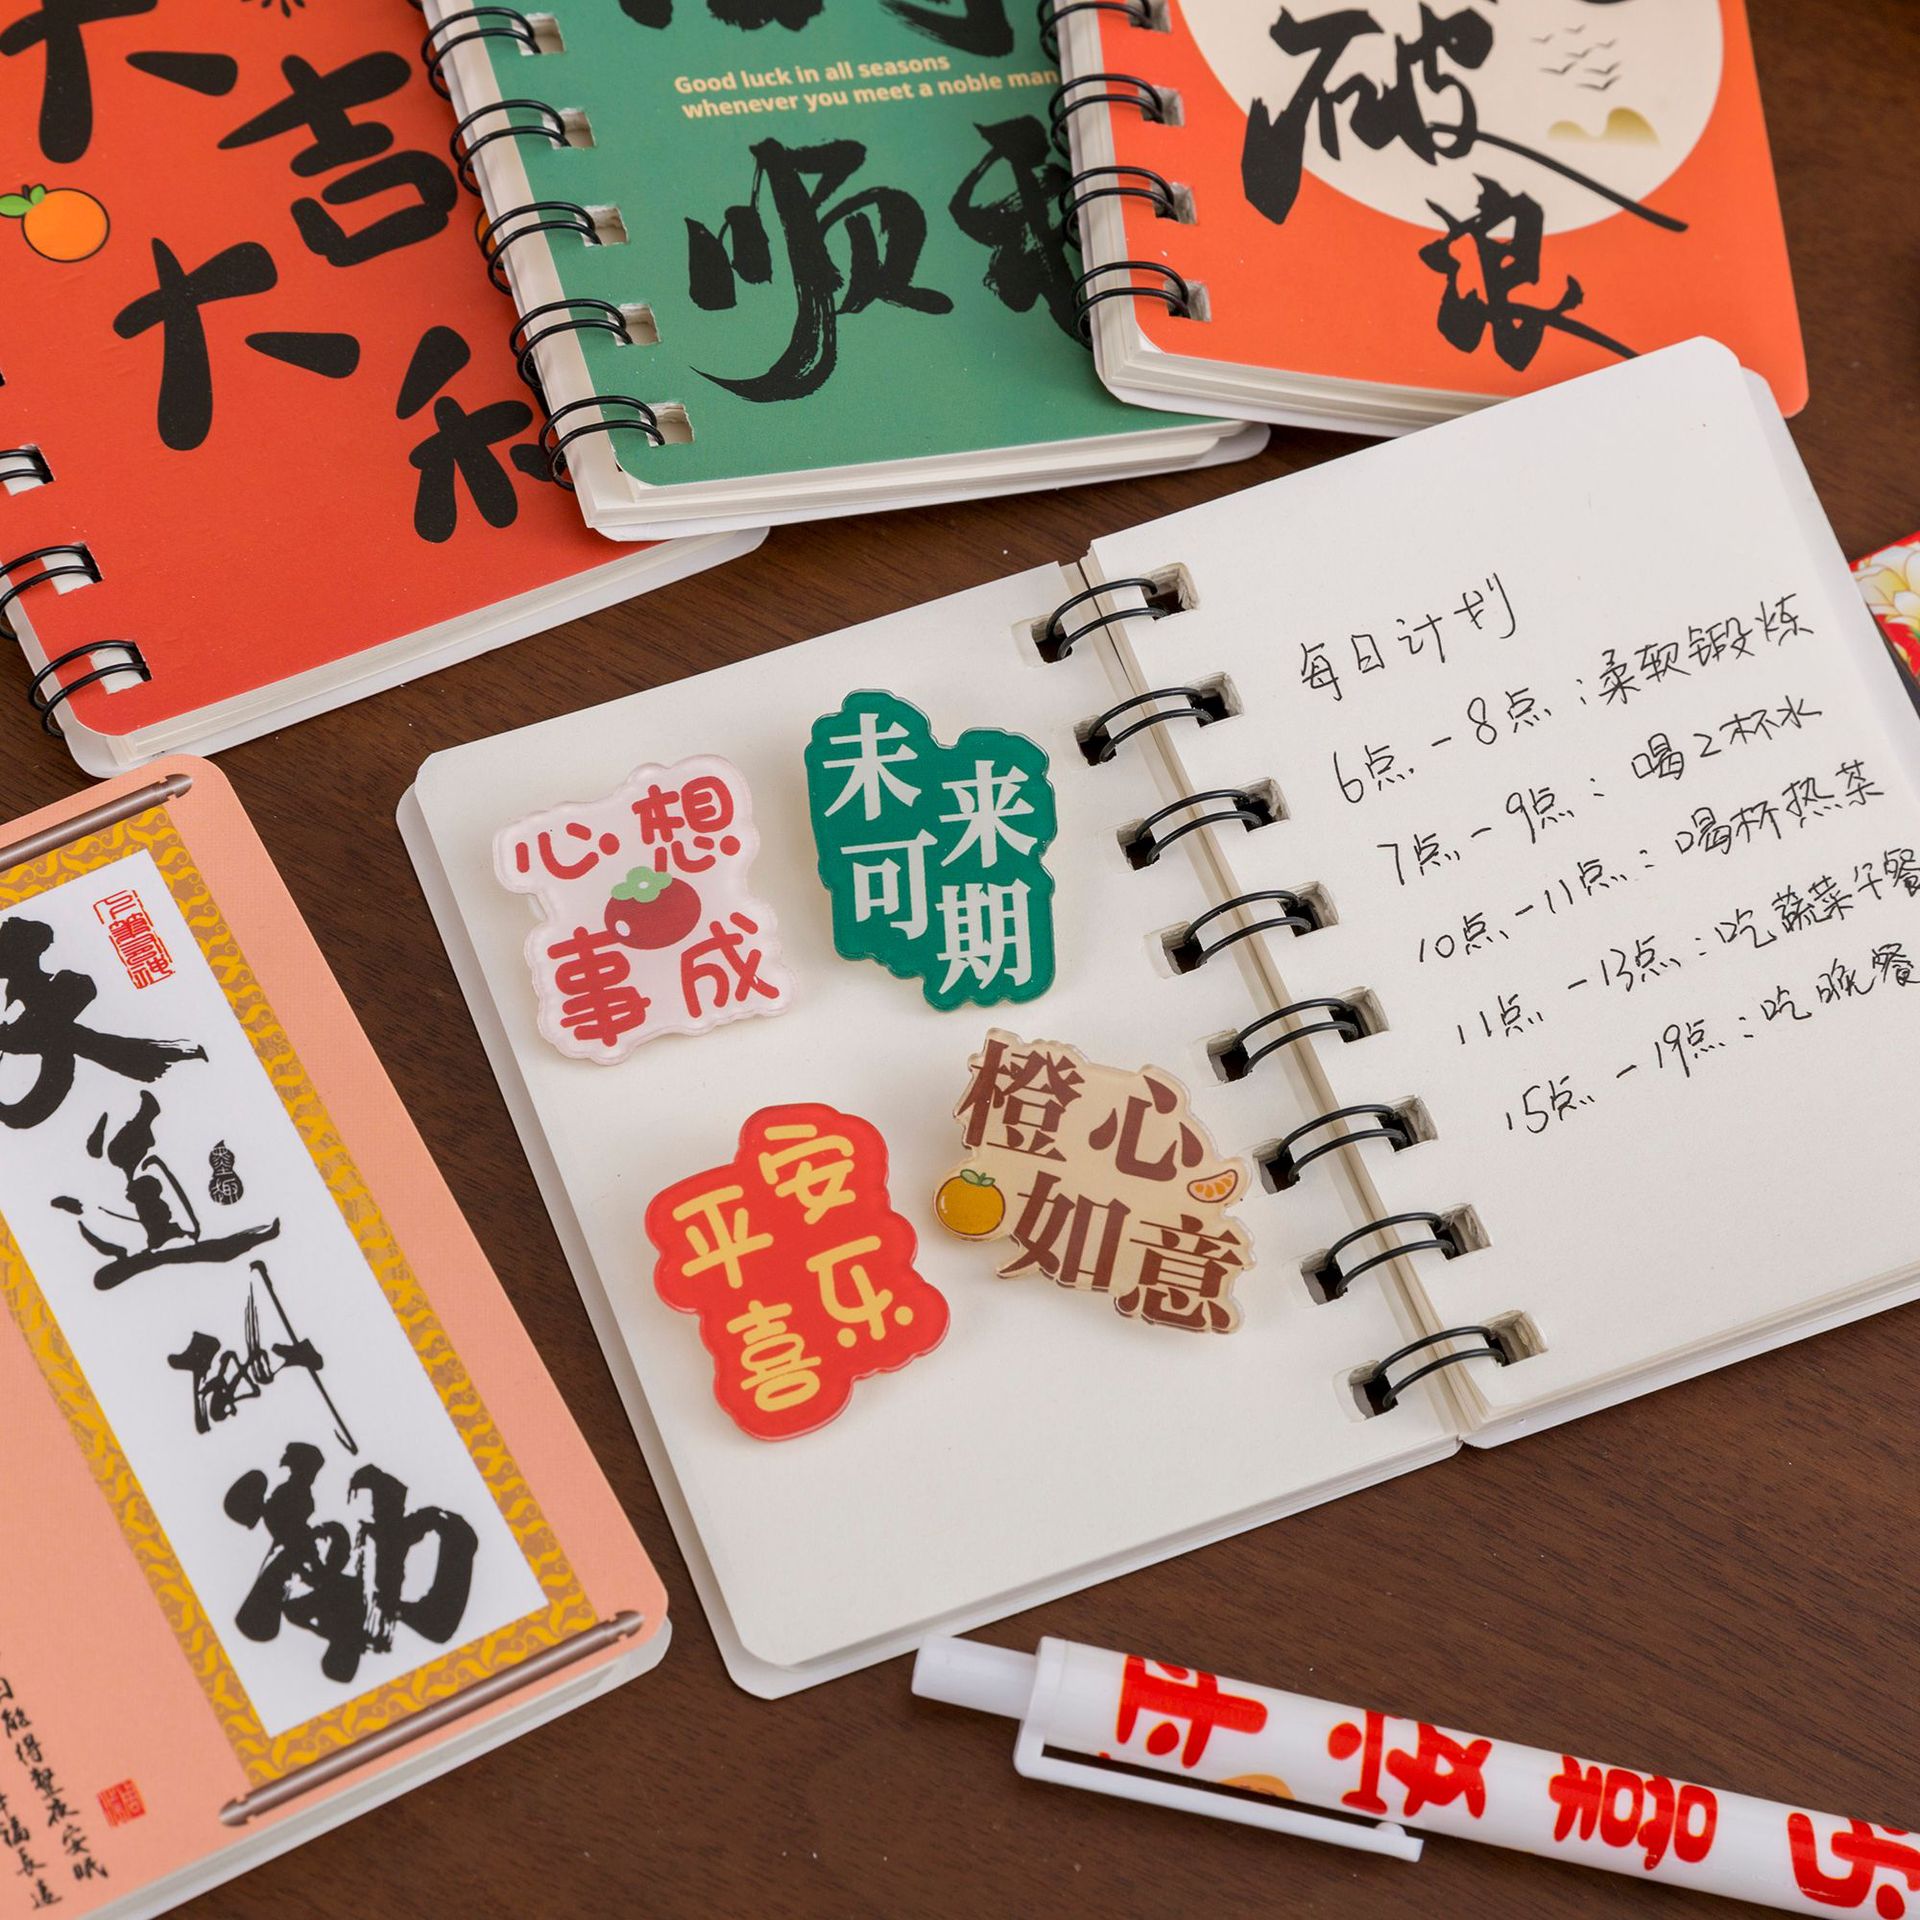 大吉
大利
Good luck in all seasons
whenever you meet a noble man
顺
破
浪
天道酬勤
墨趣
心想
事成
未来
可期
平安
喜乐
橙心
如意
每日计划
6点-8点:柔软锻炼
7点-9点:喝2杯水
10点-11点:喝杯热茶
11点-13点:吃蔬菜午餐
15点-19点:吃晚餐
平安喜乐